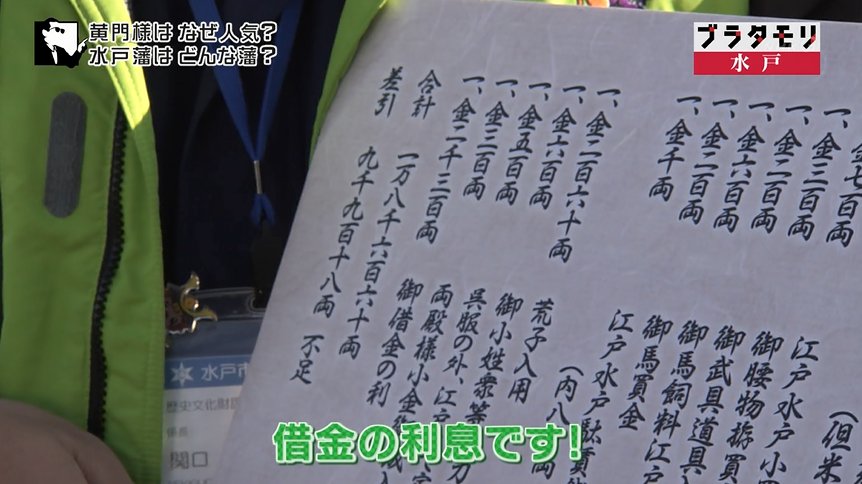 黄門様は なぜ人気?
水戸藩は どんな藩?
ブラタモリ
水戸
金七百両 (但米
一、金三百両 江戸水戸小
一、金二百両 御腰物拵買
一、金六百両 御武具道具
一、金二百両 御馬飼料江戸
一、金千両 御馬買金
江戸水戸駄賃
(内八 両
一、金二百六十両 荒子入用
一、金六百両 御小姓衆等
一、金五百両 呉服の外、江
一、金三百両 両殿様小金
一、金二千三百両 御借金の利
合計 一万八千六百六十両
差引 九千九百十八両 不足
水戸市
歴史文化財
係長
関口
借金の利息です!